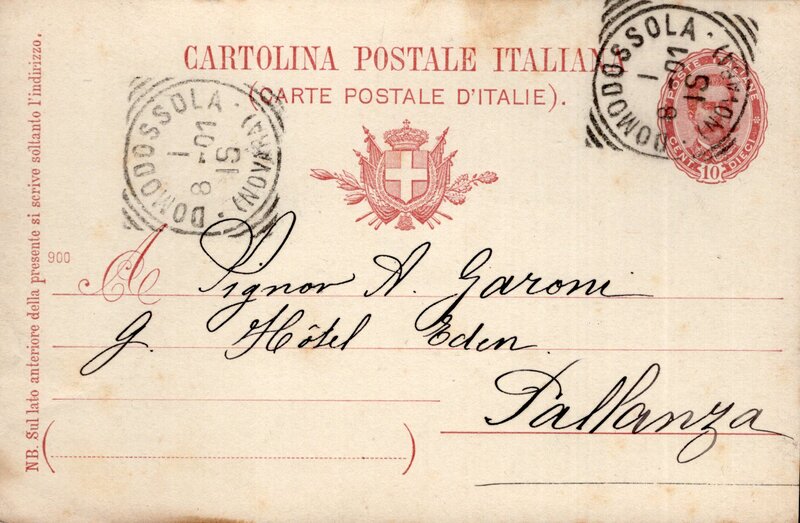 CARTOLINA POSTALE ITALIANA
(CARTE POSTALE D'ITALIE).
DOMODOSSOLA
(NOVARA)
8 - 1 - 01
1S
DOMODOSSOLA
(NOVARA)
8 1 01
1S
POSTE ITALIANE
CENT. 10 DIECI
900
A Signor A. Garoni
g. Hôtel Eden.
Pallanza
NB. Sul lato anteriore della presente si scrive soltanto l'indirizzo.